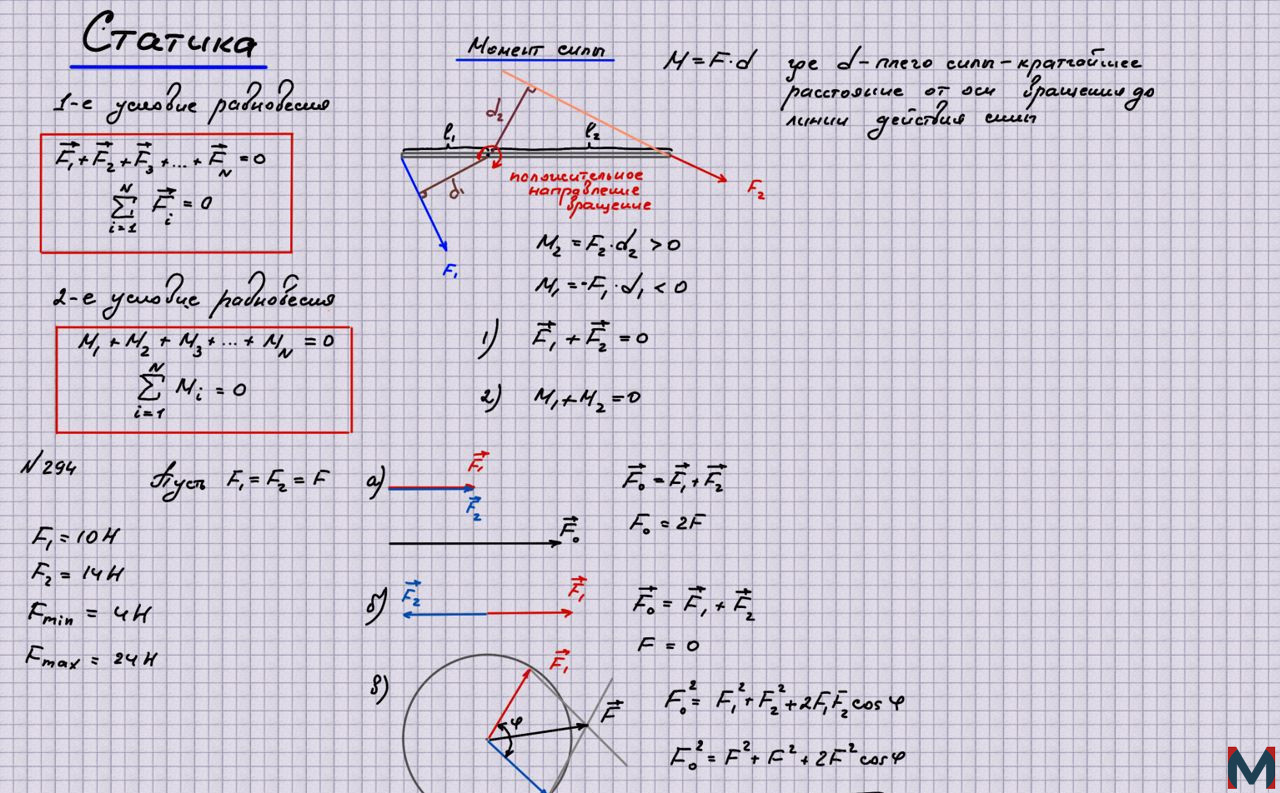 Статика
1-е условие равновесия
F₁ + F₂ + F₃ + ... + F_N = 0
N
∑ F_i = 0
i=1
2-е условие равновесия
M₁ + M₂ + M₃ + ... + M_N = 0
N
∑ M_i = 0
i=1
Момент силы
M = F · d где d - плечо силы - кратчайшее
расстояние от оси вращения до
линии действия силы
d₂
l₁ l₂
d₁
положительное
направление
вращение
F₂
F₁
M₂ = F₂ · d₂ > 0
M₁ = -F₁ · d₁ < 0
1) F₁ + F₂ = 0
2) M₁ + M₂ = 0
N 294
Пусть F₁ = F₂ = F
F₁ = 10 Н
F₂ = 14 Н
F_min = 4 Н
F_max = 24 Н
а) F₁
F₂
F₀
F₀ = F₁ + F₂
F₀ = 2F
б) F₂ F₁
F₀ = F₁ + F₂
F = 0
в) F₁
φ F
F₀² = F₁² + F₂² + 2F₁F₂ cos φ
F₀² = F² + F² + 2F² cos φ
M